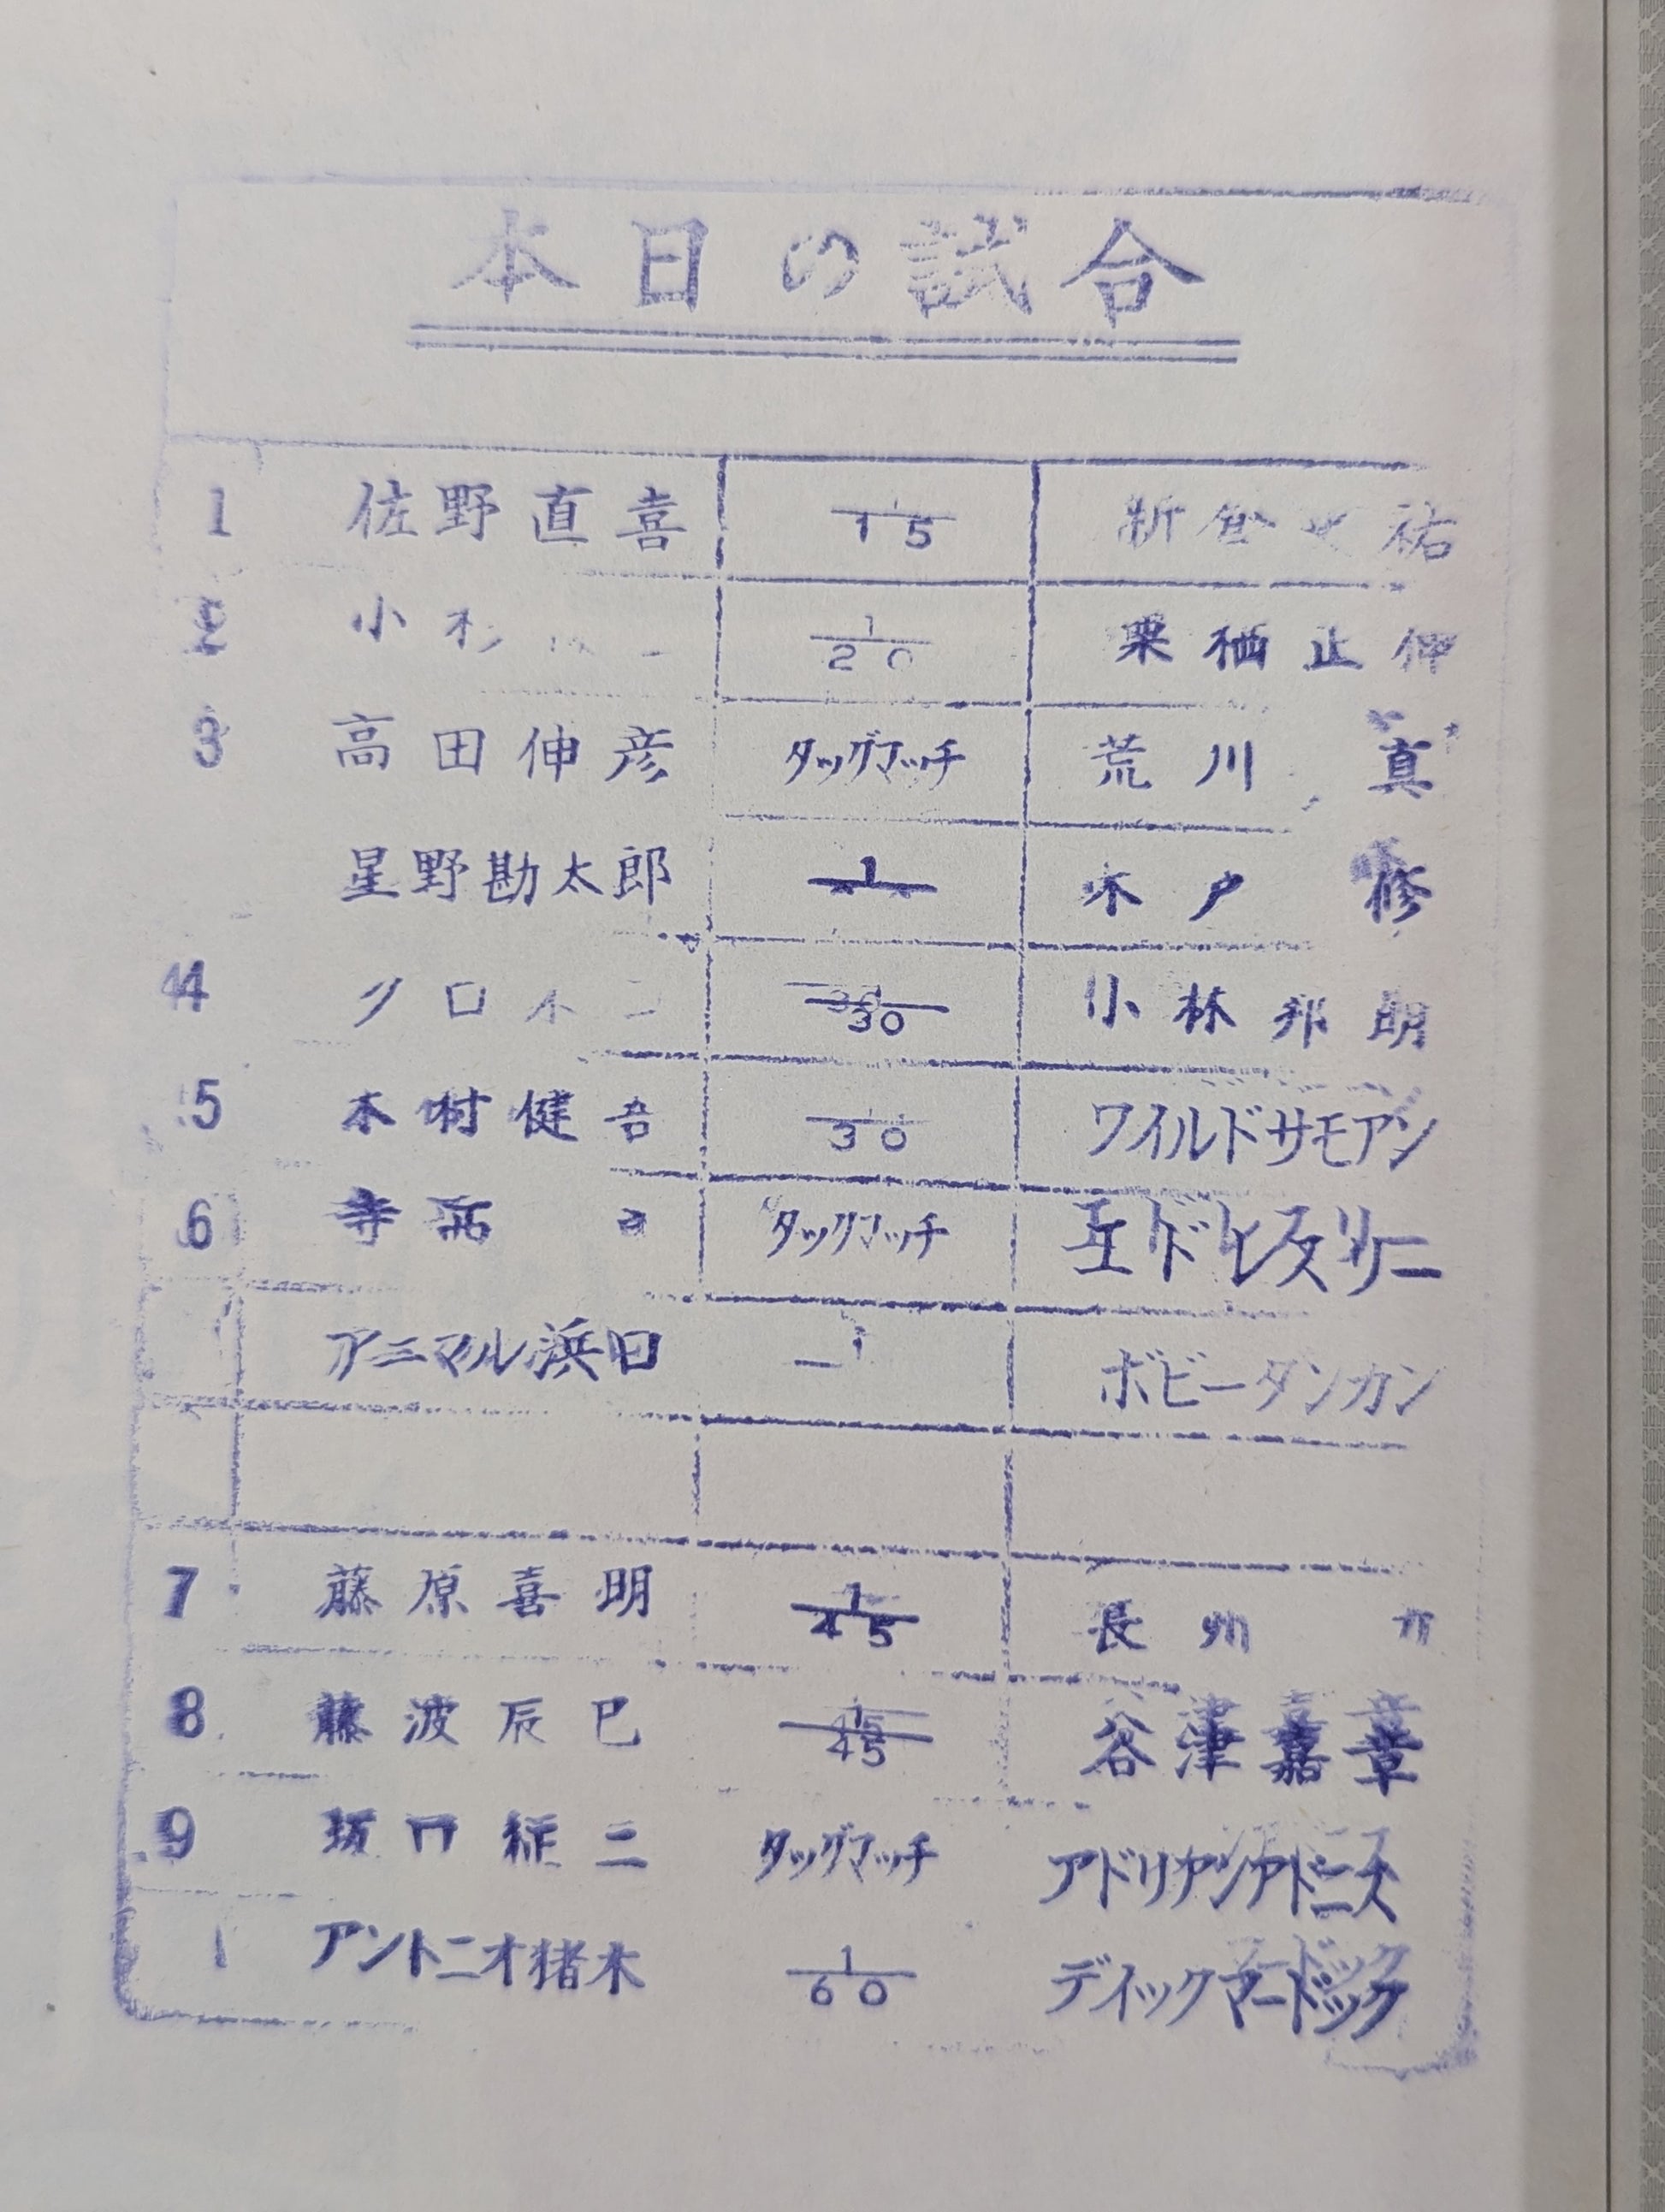 本日の試合
1 佐野直喜 1/15 新倉史祐
2 小杉 1/20 栗栖正伸
3 高田伸彦 タッグマッチ 荒川真
星野勘太郎 1 木戸修
4 クロネコ 1/30 小林邦明
5 木村健吾 1/30 ワイルドサモアン
6 寺西 タッグマッチ エドレスリー
アニマル浜口 1 ボビーダンカン
7 藤原喜明 1/45 長州力
8 藤波辰巳 1/45 谷津嘉章
9 坂口征二 タッグマッチ アドリアンアドニス
アントニオ猪木 1/60 ディックマードック